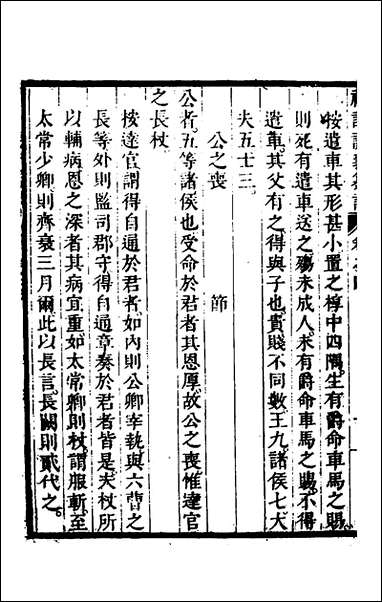 按遣車其形甚小置之椁中四隅生有爵命車馬之賜
則死有遣車送之殤未成人未有爵命車馬之賜不得
遣車其父有之得與子也貴賤不同數王九諸侯七大
夫五士三
公之喪　節
公者五等諸侯也受命於君者其恩厚故公之喪惟達官
之長杖
按達官謂得自通於君者如內則公卿宰執與六曹之
長等外則監司郡守得自通章奏於君者皆是夫杖所
以輔病恩之深者其病宜重如太常卿則杖謂服斬至
太常少卿則齊衰三月爾此以長言長闕則貳代之